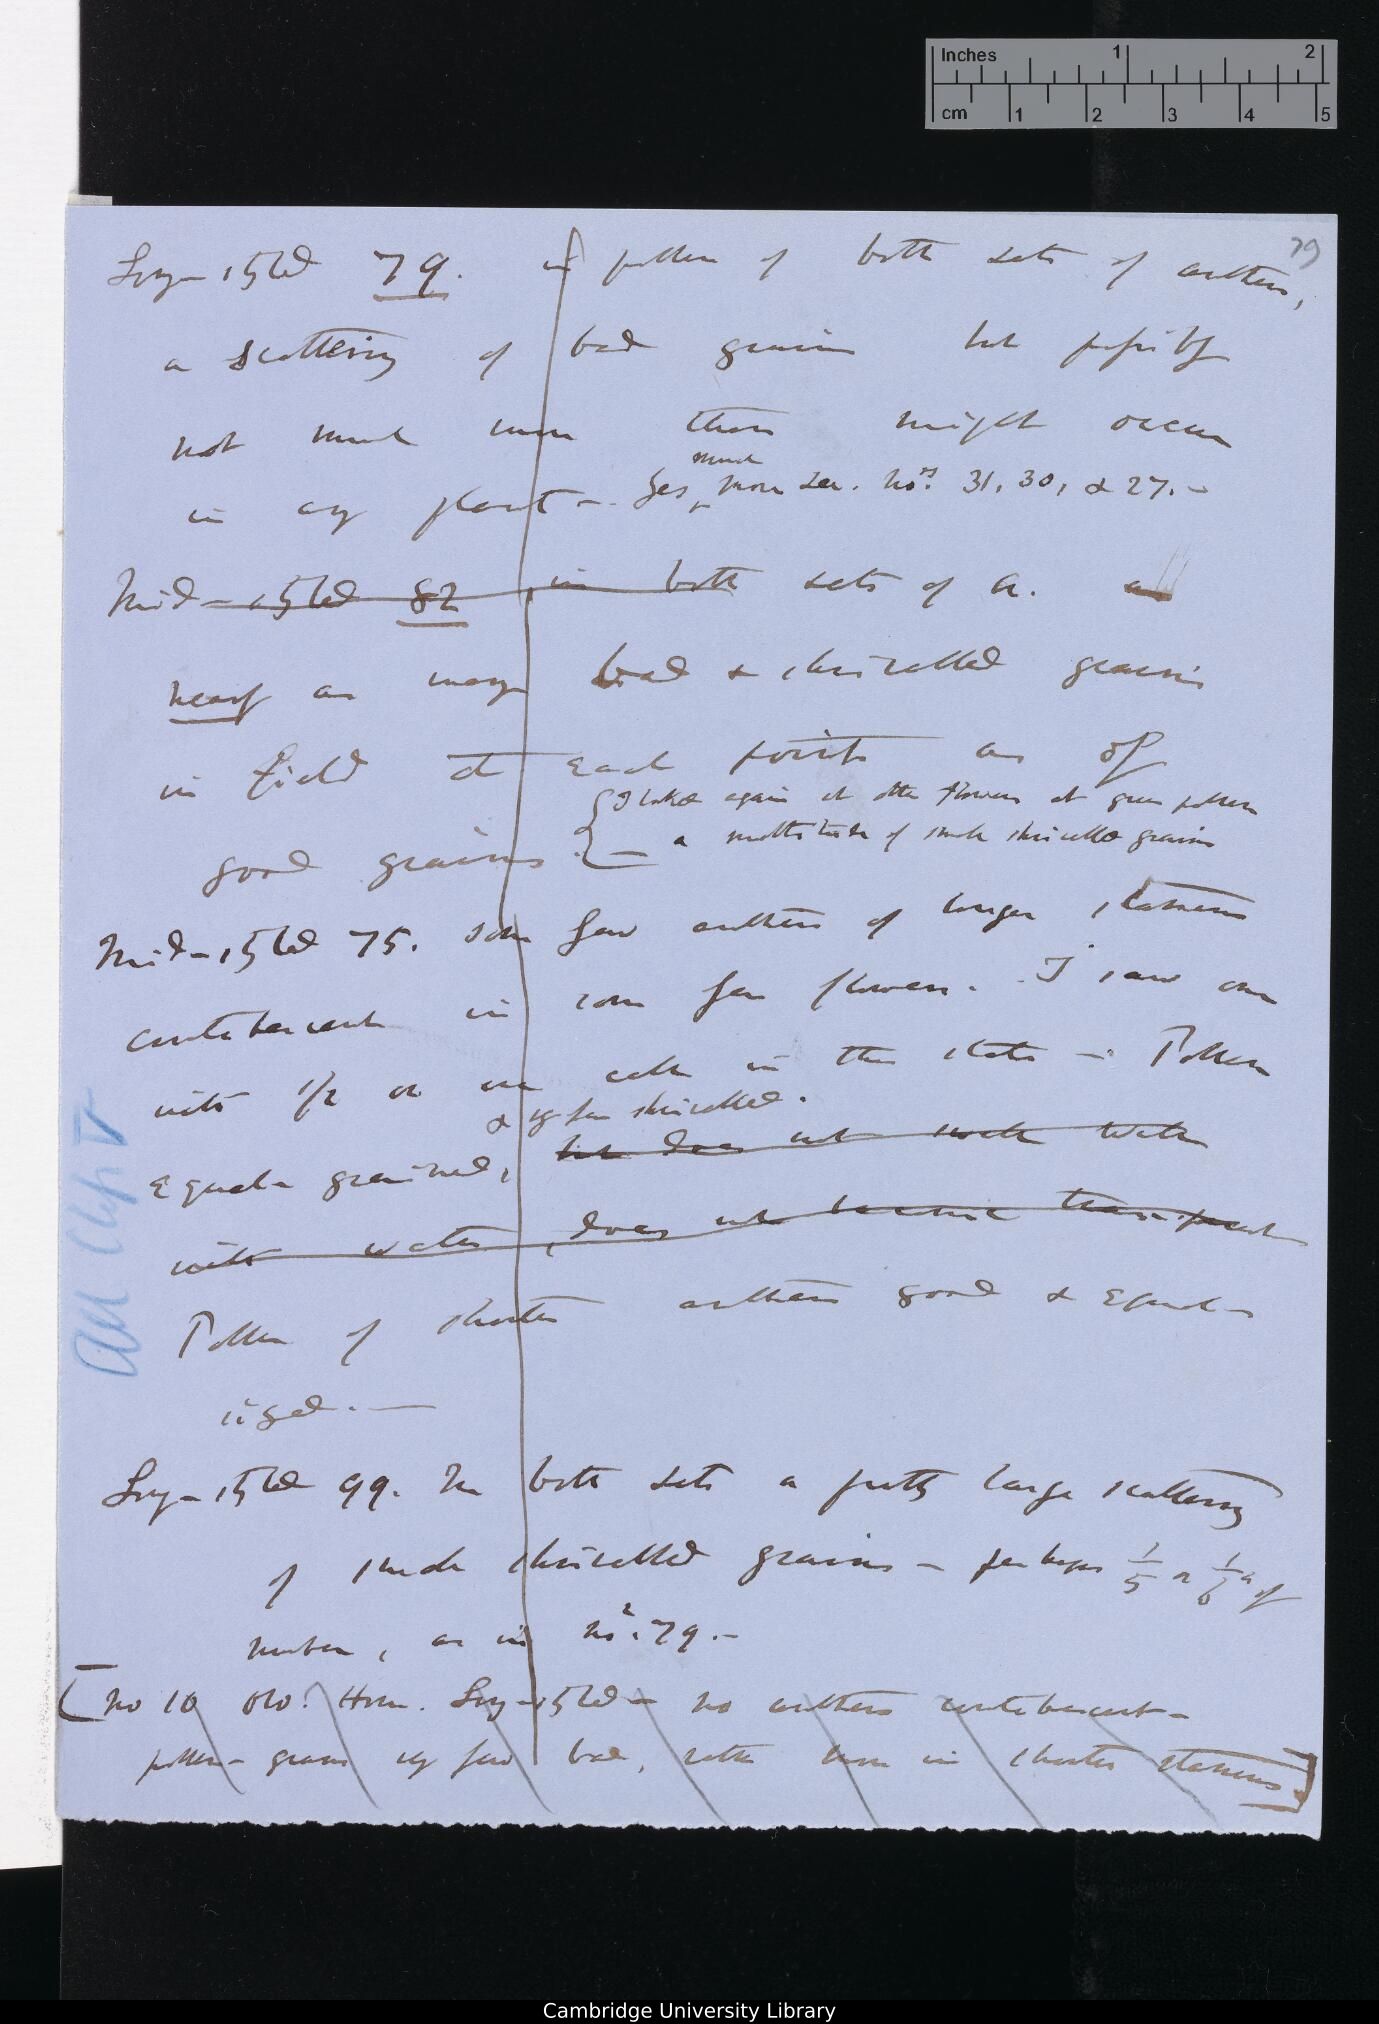 Inches 1 2
cm 1 2 3 4 5
79
Long-styled 79. in pollen of both sets of anthers,
a scattering of bad grains but possibly
not much more than might occur
much
in any plant —. Yes, more see. nos. 31, 30, & 27. —
Mid-styled 82, in both sets of a.
nearly as many bad & shrivelled grains
in field at each point as of
I looked again at other flowers at green pollen
a multitude of small shrivelled grains
good grains.
Mid-styled 75. some few anthers of longer stamens
contabescent in some few flowers. I saw one
with 1/2 or one cell in this state — Pollen
& very few shrivelled.
equal-grained, but does not swell
with water, does not become transparent
Pollen of shorter anthers good & equal-
sized. —
Long-styled 99. In both sets a pretty large scattering
of small shrivelled grains — perhaps 1/5 or 1/6 of
number, as in no. 79. —
All Chap V
[no 10 old. Hom. Long-styled — no anthers contabescent —
pollen-grains very few bad, rather more in shorter stamens]
Cambridge University Library